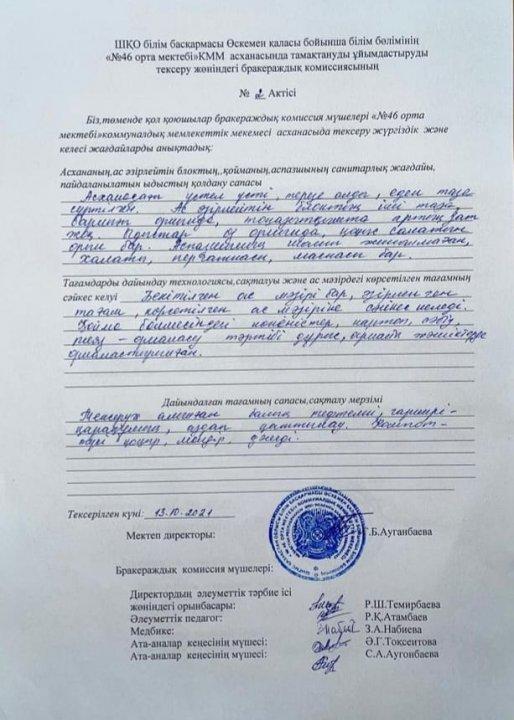 ШҚО білім басқармасы Өскемен қаласы бойынша білім бөлімінің
«№46 орта мектебі»КММ асханасында тамақтануды ұйымдастыруды
тексеру жөніндегі бракераждық комиссиясының
№ 2 Актісі
Біз,төменде қол қоюшылар бракераждық комиссия мүшелері «№46 орта
мектебі»коммуналдық мемлекеттік мекемесі асханасыда тексеру жүргіздік және
келесі жағдайларды анықтадық:
Асхананың,ас әзірлейтін блоктың,,қойманың,аспазшының санитарлық жағдайы,
пайдаланылатын ыдыстың қолдану сапасы
үстел үсті еден таза
сүртілген. Ас әзірлейтін блоктың іші таза,
барлығы орнында, артық зат
жоқ. өз орнында,
орны бар.
халаты, перчаткасы, маскасы бар.
Тағамдарды дайындау технологиясы,сақталуы және ас мәзірдегі көрсетілген тағамның
сәйкес келуі Бекітілген ас мәзірі бар, әзірленген
тағам, көрсетілген ас мәзіріне сәйкес келеді.
Қойма бөлмесіндегі көкөністер, картоп, сәбіз,
тәртібі дұрыс, арнайы жәшіктерде
орналастырылған.
Дайындалған тағамның сапасы,сақталу мерзімі
Тексеруге алынған балық тефтелиі, гарнирі-
қарақұмық, аздап Компот-
түсі қоңыр, мөлдір, дәмді.
Тексерілген күні: 13.10.2021
Мектеп директоры: Г.Б.Ауганбаева
Бракераждық комиссия мүшелері:
Директордың әлеуметтік тәрбие ісі
жөніндегі орынбасары: Р.Ш.Темирбаева
Әлеуметтік педагог: Р.Қ.Атамбаев
Медбике: З.А.Набиева
Ата-аналар кеңесінің мүшесі: Ә.Г.Токсеитова
Ата-аналар кеңесінің мүшесі: С.А.Аугонбаева